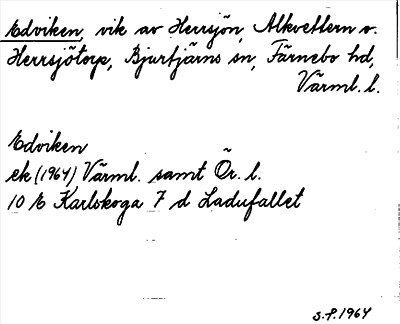 Edviken, vik av Herrsjön, Alkvettern o.
Herrsjötorp, Bjurtjärns sn, Färnebo hd,
Värml. l.
Edviken
ek (1964) Värml. samt Ör. l.
10 E Karlskoga 7 d Ladufallet
S.P. 1964